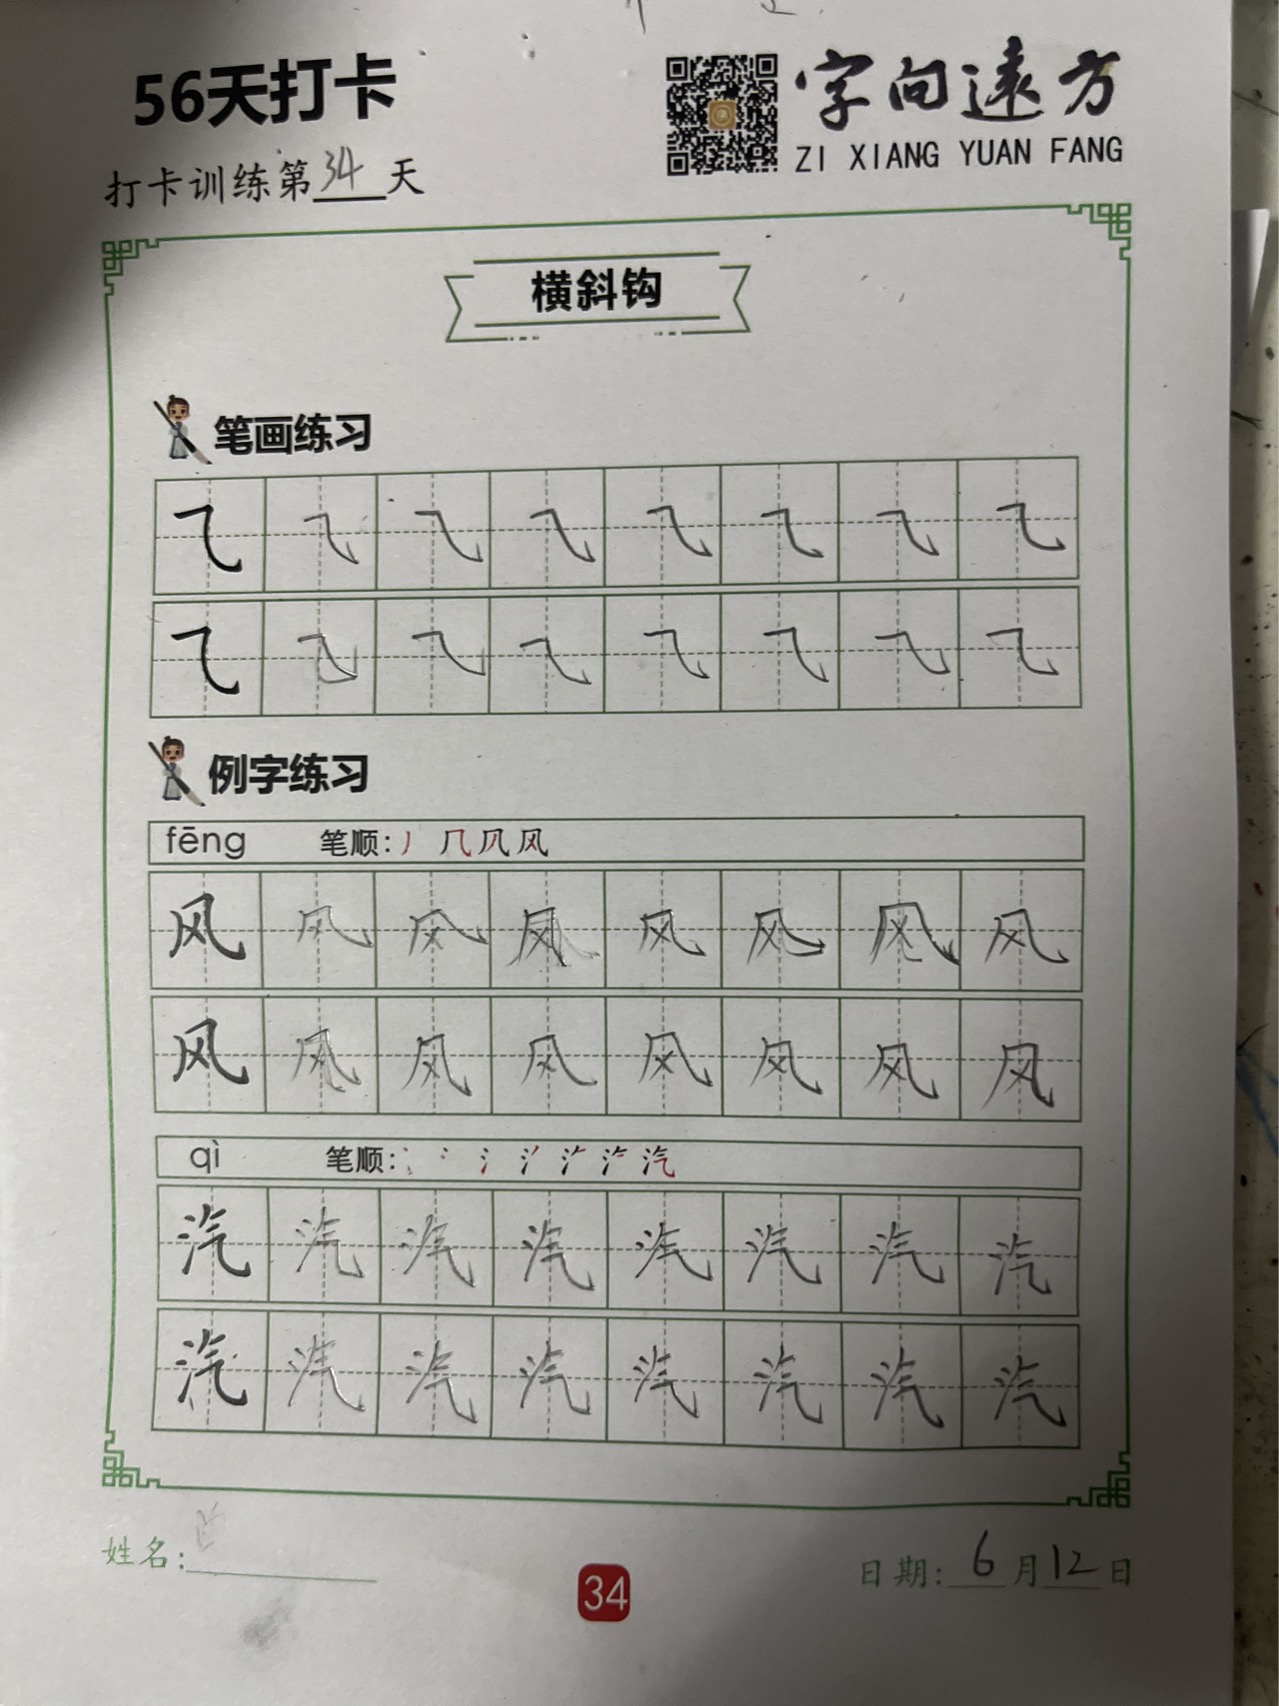 56天打卡
字向远方
ZI XIANG YUAN FANG
打卡训练第34天
横斜钩
笔画练习
㇈ ㇈ ㇈ ㇈ ㇈ ㇈ ㇈ ㇈
㇈ ㇈ ㇈ ㇈ ㇈ ㇈ ㇈ ㇈
例字练习
fēng 笔顺: 丿 几 风
风 风 风 风 风 风 风 风
风 风 风 风 风 风 风 风
qì 笔顺: 汽
汽 汽 汽 汽 汽 汽 汽 汽
汽 汽 汽 汽 汽 汽 汽 汽
姓名:
34
日期: 6月12日